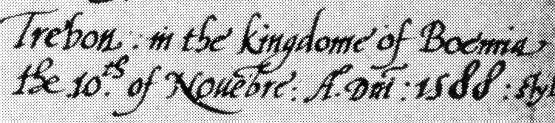 Trebon: in the kingdome of Boemia
the 10.th of Nouēbre: A.° Dnī: 1588: styl